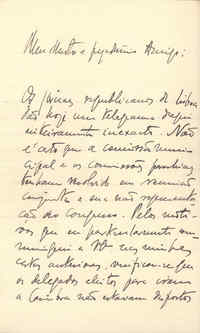 Meu ilustre e prezadíssimo Amigo:
Os jornais republicanos de Lisboa
dão hoje um telegrama daqui
inteiramente inexacto. Não
é certo que a comissão muni-
cipal e as comissões paroquiais
tenham resolvido em reunião
conjunta a sua não representa-
ção no Congresso. Pelos moti-
vos que eu particularmente com-
muniquei a V. nas minhas
cartas anteriores, verificou-se que
os delegados eleitos para
a Camara não estavam dispostos